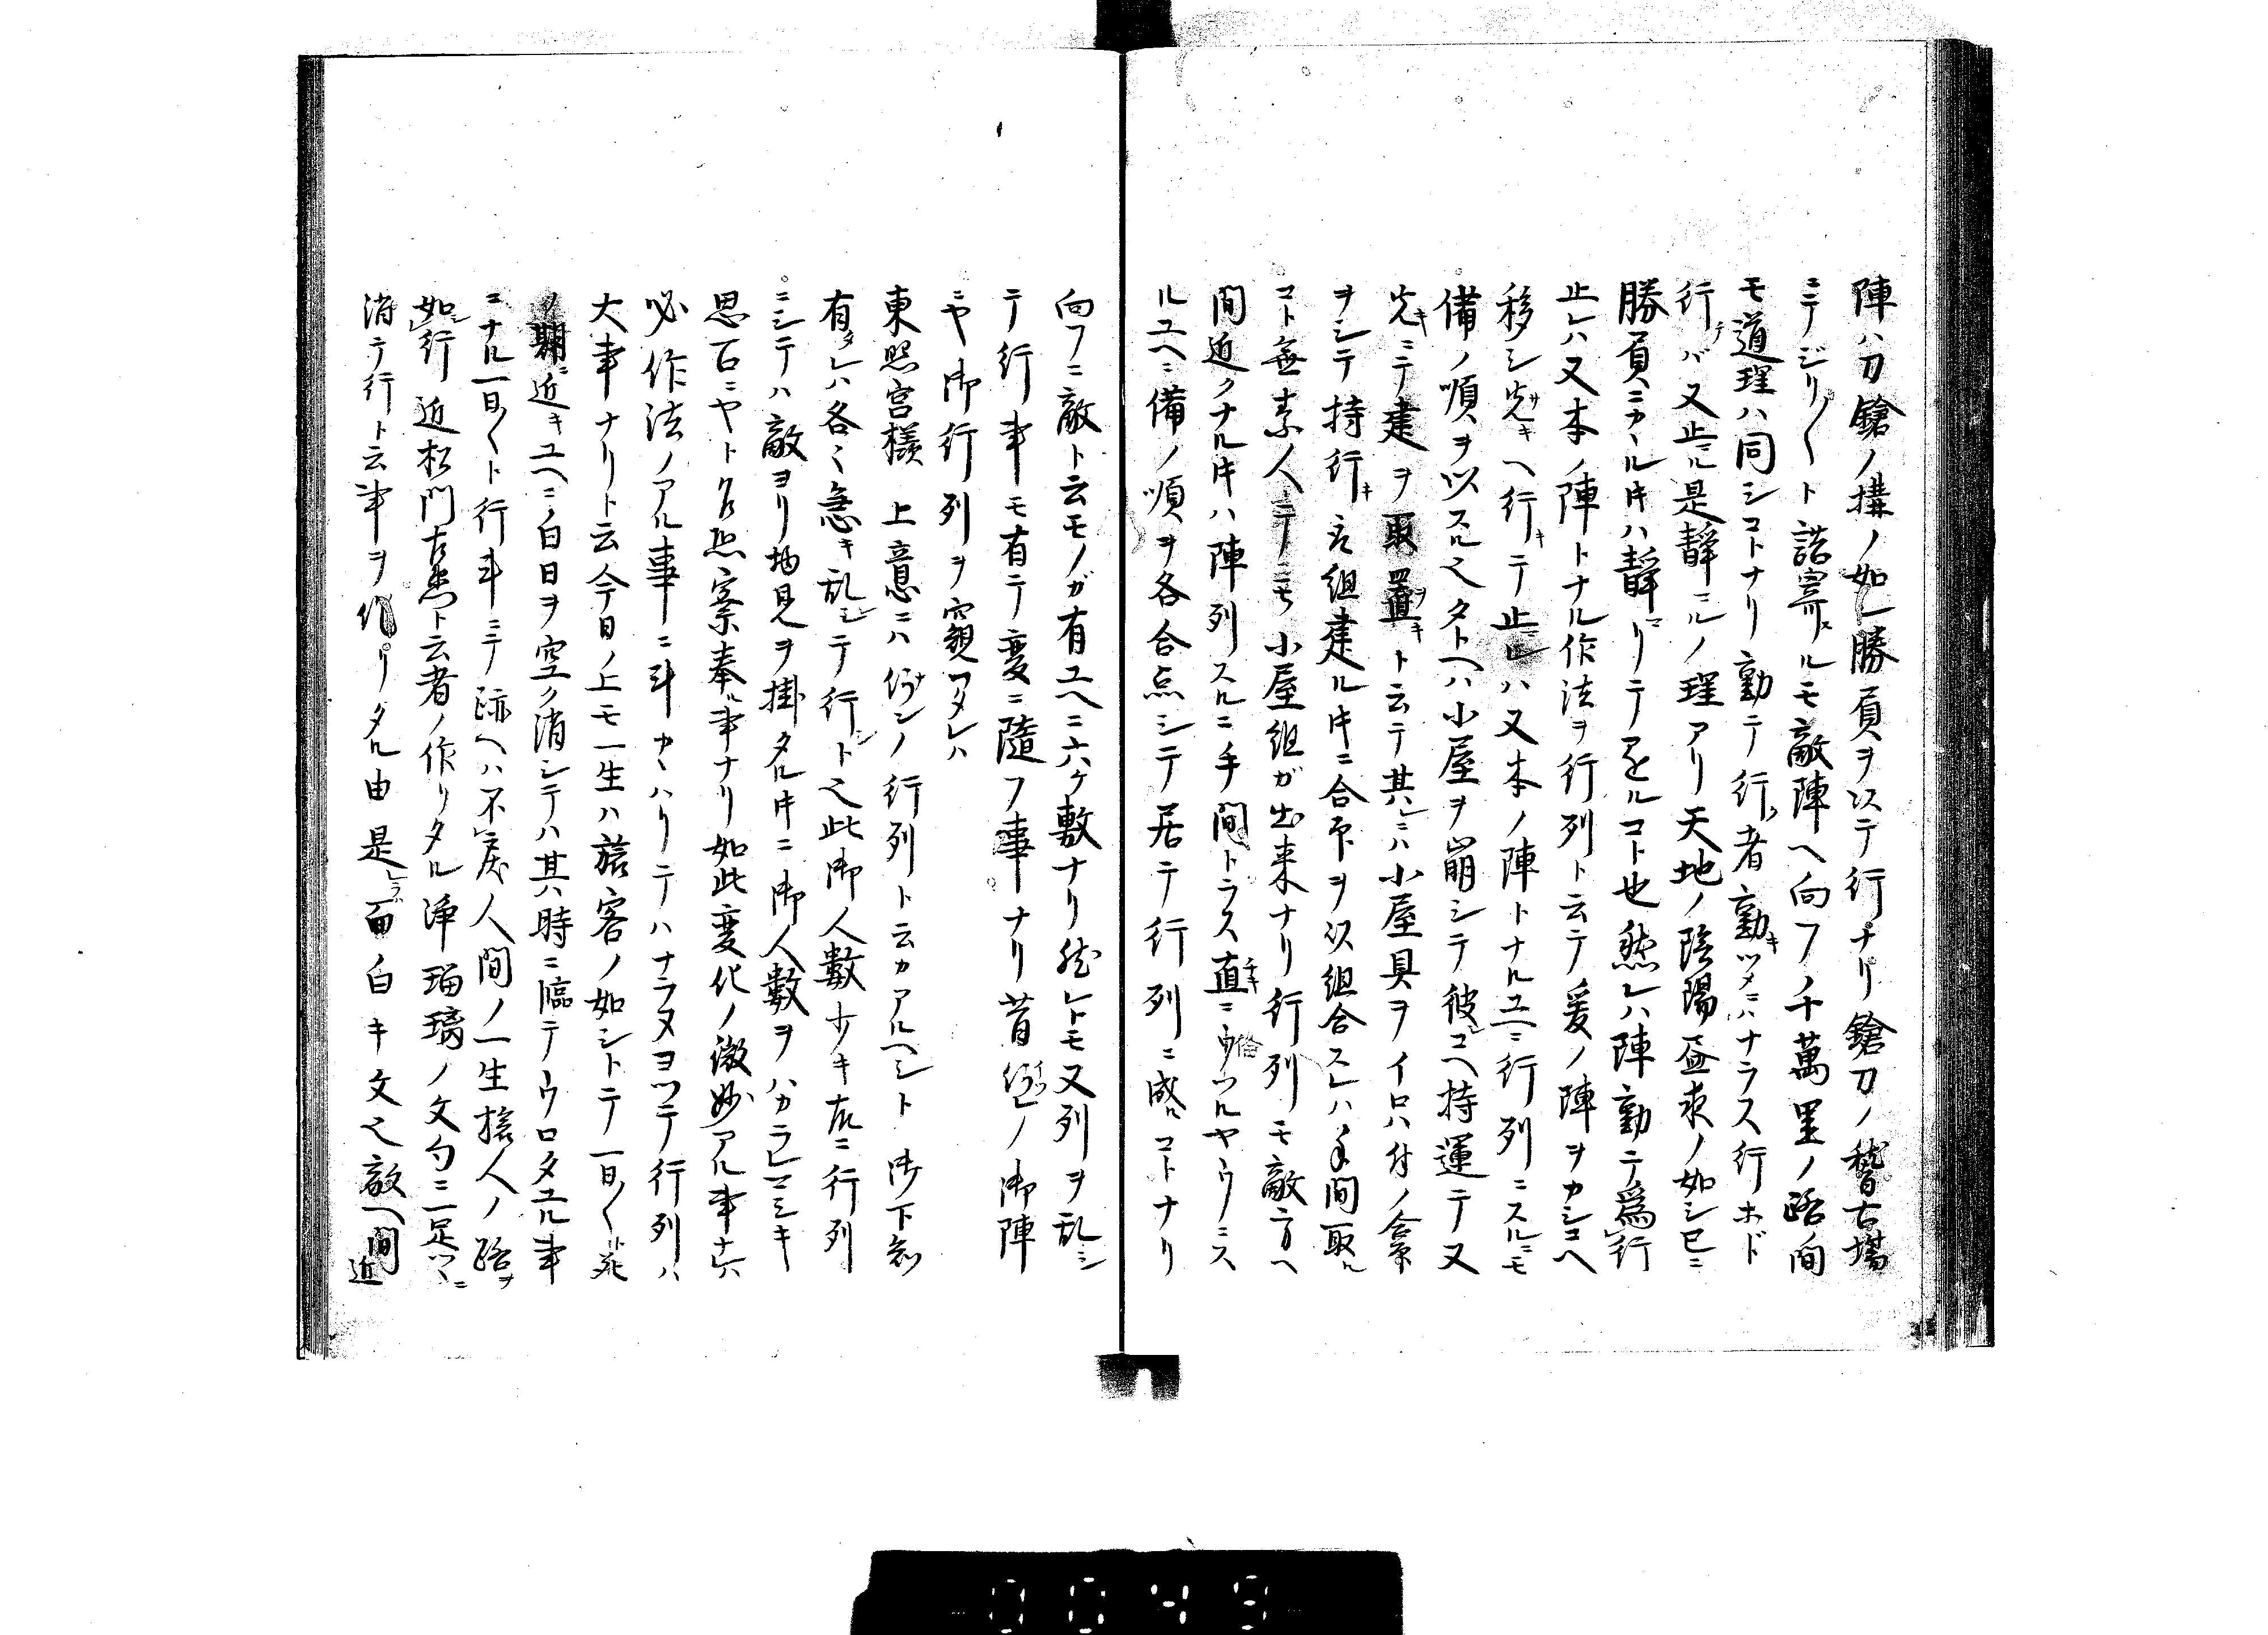 陣ハ刀鎗ノ構ノ如シ勝負ヲ以テ行ナリ鎗刀ノ稽古場
ニテジリ〱ト詰寄ルモ敵陣ヘ向フノ千萬里ノ路間
モ道理ハ同シコトナリ動テ行ク者動キツメニハナラス行ホド
行テバ又止ル是静ニルノ理アリ天地ノ陰陽昼夜ノ如シ已ニ
勝負ニカヽル片ハ静リテアルコト也然レハ陣動テ為行
止レハ又本ノ陣トナル作法ヲ行列ト云テ爰ノ陣ヲカシコヘ
移シ先キヘ行キテ止レハ又本ノ陣トナルユヘニ行列ニスルニモ
備ノ順ヲ以スル也タトヘハ小屋ヲ崩シテ彼コヘ持運テ又
先キニテ建ヲ取置キト云テ其レニハ小屋具ヲイロハ付ノ
ヲシテ持行キ組建ル片ニ合印ヲ以組合スレハ手間取ル
コト無素人ニテモ小屋組ガ出来ナリ行列モ敵方ヘ
間近クナル片ハ陣列スルニ手間トラス直ニウツルヤウニス
ルユヘニ備ノ順ヲ各合点シテ居テ行列ニ成ルコトナリ
向フニ敵ト云モノガ有ユヘニ六ケ敷ナリ然レトモ又列ヲ乱シ
テ行事モ有テ変ニ随フ事ナリ昔ノ御陣
ニヤ御行列ヲ窺フタレハ
東照宮様 上意ニハノ行列ト云カアルヘシト御下知
有タレハ各〻急キ乱シテ行シト也此御人数少キ故ニ行列
ニシテハ敵ヨリ物見ヲ掛タル片ニ御人数ヲハカラレマシキ
思召ニヤト乍恐察奉ル事ナリ如此変化ノ微妙アル事ナレハ
必作法ノアル事ニ斗カヽハリテハナラヌヨツテ行列ハ
大事ナリト云今日ノ上モ一生ハ旅客ノ如シトテ一日〱ト死
ノ期ニ近キユヘニ白日ヲ空ク消シテハ其時ニ臨テウロタユル事
ニナル一日〱ト行斗ニテ跡ヘハ不戻人間ノ一生旅人ノ路ヲ
如行近松門左衛門ト云者ノ作リタル浄瑠璃ノ文句ニ一足ツヽニ
消テ行ト云事ヲ作リタル由是面白キ文也敵ヘ間近